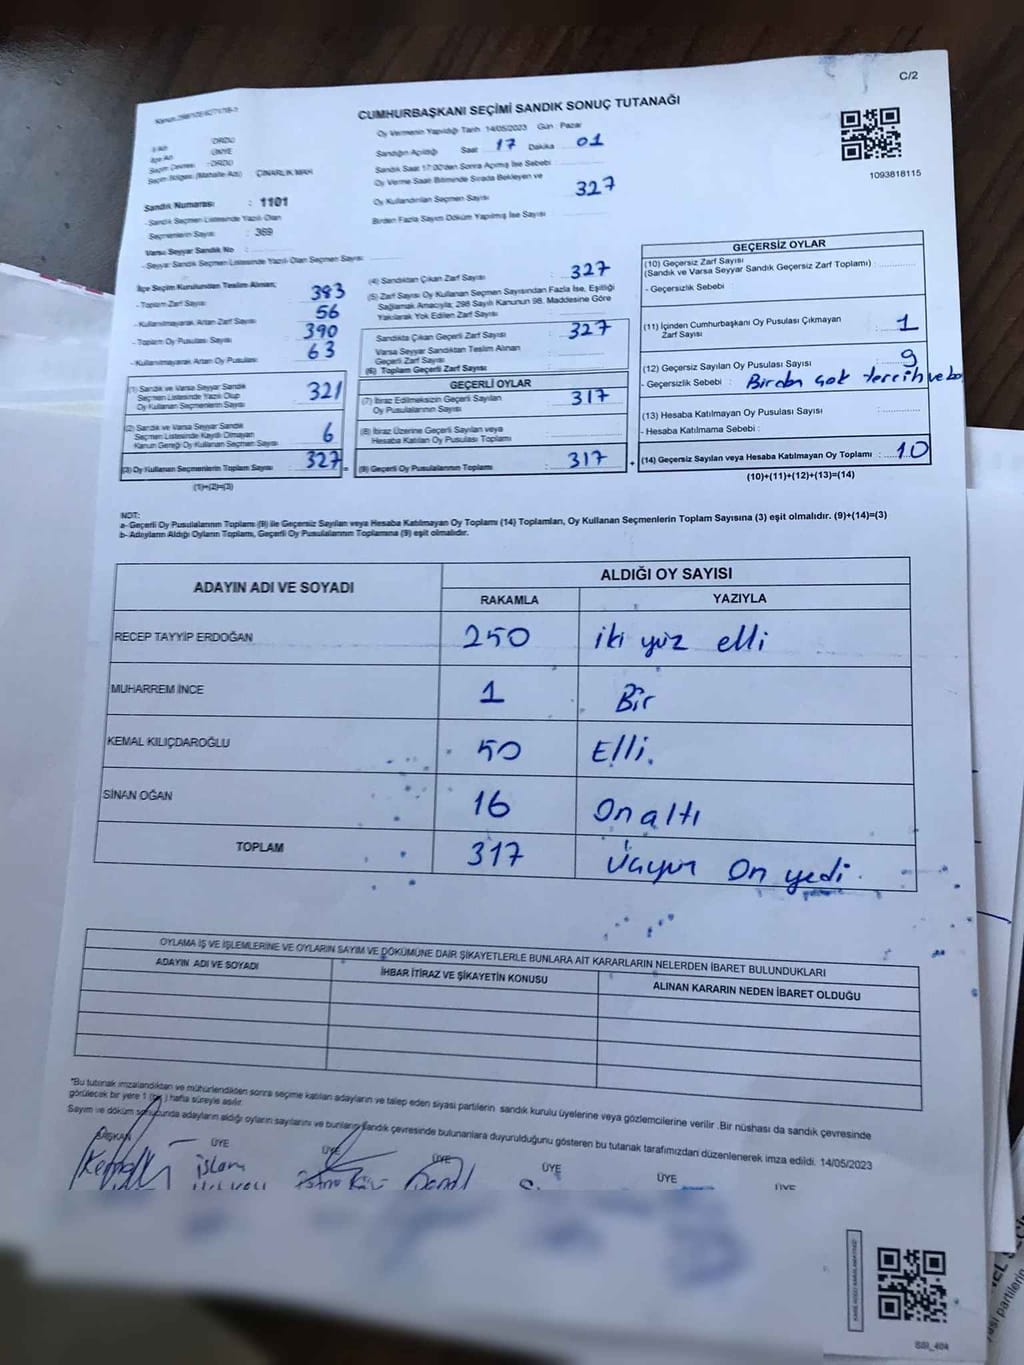 C/2
CUMHURBAŞKANI SEÇİMİ SANDIK SONUÇ TUTANAĞI
Oy Vermenin Yapıldığı Tarih 14/05/2023 Gün : Pazar
Sandığın Açıldığı Saat : 17 Dakika : 01
Sandık Saat 17:00'den Sonra Açılmış İse Sebebi :
Oy Verme Saati Bitiminde Sırada Bekleyen ve
Oy Kullandırılan Seçmen Sayısı : 327
Birden Fazla Sayım Döküm Yapılmış İse Sayısı
1093818115
İli Adı : ORDU
İlçe Adı : ÜNYE
Seçim Çevresi : ORDU
Seçim Bölgesi (Mahalle Adı) : ÇINARLIK MAH
Sandık Numarası : 1101
- Sandık Seçmen Listesinde Yazılı Olan
Seçmenlerin Sayısı : 369
Varsa Seyyar Sandık No :
- Seyyar Sandık Seçmen Listesinde Yazılı Olan Seçmen Sayısı :
İlçe Seçim Kurulundan Teslim Alınan;
- Toplam Zarf Sayısı : 383
- Kullanılmayarak Artan Zarf Sayısı : 56
- Toplam Oy Pusulası Sayısı : 390
- Kullanılmayarak Artan Oy Pusulası : 63
(1) Sandık ve Varsa Seyyar Sandık
Seçmen Listesinde Yazılı Olup
Oy Kullanan Seçmenlerin Sayısı : 321
(2) Sandık ve Varsa Seyyar Sandık
Seçmen Listesinde Kaydı Olmayan
Kanun Gereği Oy Kullanan Seçmen Sayısı : 6
(3) Oy Kullanan Seçmenlerin Toplam Sayısı : 327 =
(1)+(2)=(3)
(4) Sandıktan Çıkan Zarf Sayısı : 327
(5) Zarf Sayısı Oy Kullanan Seçmen Sayısından Fazla İse, Eşitliği
Sağlamak Amacıyla; 298 Sayılı Kanunun 98. Maddesine Göre
Yakılarak Yok Edilen Zarf Sayısı :
Sandıkta Çıkan Geçerli Zarf Sayısı : 327
Varsa Seyyar Sandıktan Teslim Alınan
Geçerli Zarf Sayısı :
(6) Toplam Geçerli Zarf Sayısı :
GEÇERLİ OYLAR
(7) İtiraz Edilmeksizin Geçerli Sayılan
Oy Pusulalarının Sayısı : 317
(8) İtiraz Üzerine Geçerli Sayılan veya
Hesaba Katılan Oy Pusulası Toplamı :
(9) Geçerli Oy Pusulalarının Toplamı : 317 +
GEÇERSİZ OYLAR
(10) Geçersiz Zarf Sayısı
(Sandık ve Varsa Seyyar Sandık Geçersiz Zarf Toplamı) :
- Geçersizlik Sebebi :
(11) İçinden Cumhurbaşkanı Oy Pusulası Çıkmayan
Zarf Sayısı : 1
(12) Geçersiz Sayılan Oy Pusulası Sayısı : 9
- Geçersizlik Sebebi : Birden çok tercih ve bo
(13) Hesaba Katılmayan Oy Pusulası Sayısı :
- Hesaba Katılmama Sebebi :
(14) Geçersiz Sayılan veya Hesaba Katılmayan Oy Toplamı : 10
(10)+(11)+(12)+(13)=(14)
NOT:
a- Geçerli Oy Pusulalarının Toplamı (9) ile Geçersiz Sayılan veya Hesaba Katılmayan Oy Toplamı (14) Toplamları, Oy Kullanan Seçmenlerin Toplam Sayısına (3) eşit olmalıdır. (9)+(14)=(3)
b- Adayların Aldığı Oyların Toplamı, Geçerli Oy Pusulalarının Toplamına (9) eşit olmalıdır.
ADAYIN ADI VE SOYADI ALDIĞI OY SAYISI
RAKAMLA YAZIYLA
RECEP TAYYİP ERDOĞAN 250 iki yüz elli
MUHARREM İNCE 1 Bir
KEMAL KILIÇDAROĞLU 50 Elli.
SİNAN OĞAN 16 On altı
TOPLAM 317 On yedi.
OYLAMA İŞ VE İŞLEMLERİNE VE OYLARIN SAYIM VE DÖKÜMÜNE DAİR ŞİKAYETLERLE BUNLARA AİT KARARLARIN NELERDEN İBARET BULUNDUKLARI
ADAYIN ADI VE SOYADI İHBAR İTİRAZ VE ŞİKAYETİN KONUSU ALINAN KARARIN NEDEN İBARET OLDUĞU
*Bu tutanak imzalandıktan ve mühürlendikten sonra seçime katılan adayların ve talep eden siyasi partilerin sandık kurulu üyelerine veya gözlemcilerine verilir. Bir nüshası da sandık çevresinde
görülecek bir yere 1 (bir) hafta süreyle asılır.
Sayım ve döküm sonucunda adayların aldığı oyların sayılarını ve bunların sandık çevresinde bulunanlara duyurulduğunu gösteren bu tutanak tarafımızdan düzenlenerek imza edildi. 14/05/2023
BAŞKAN ÜYE ÜYE ÜYE ÜYE ÜYE ÜYE
İslam